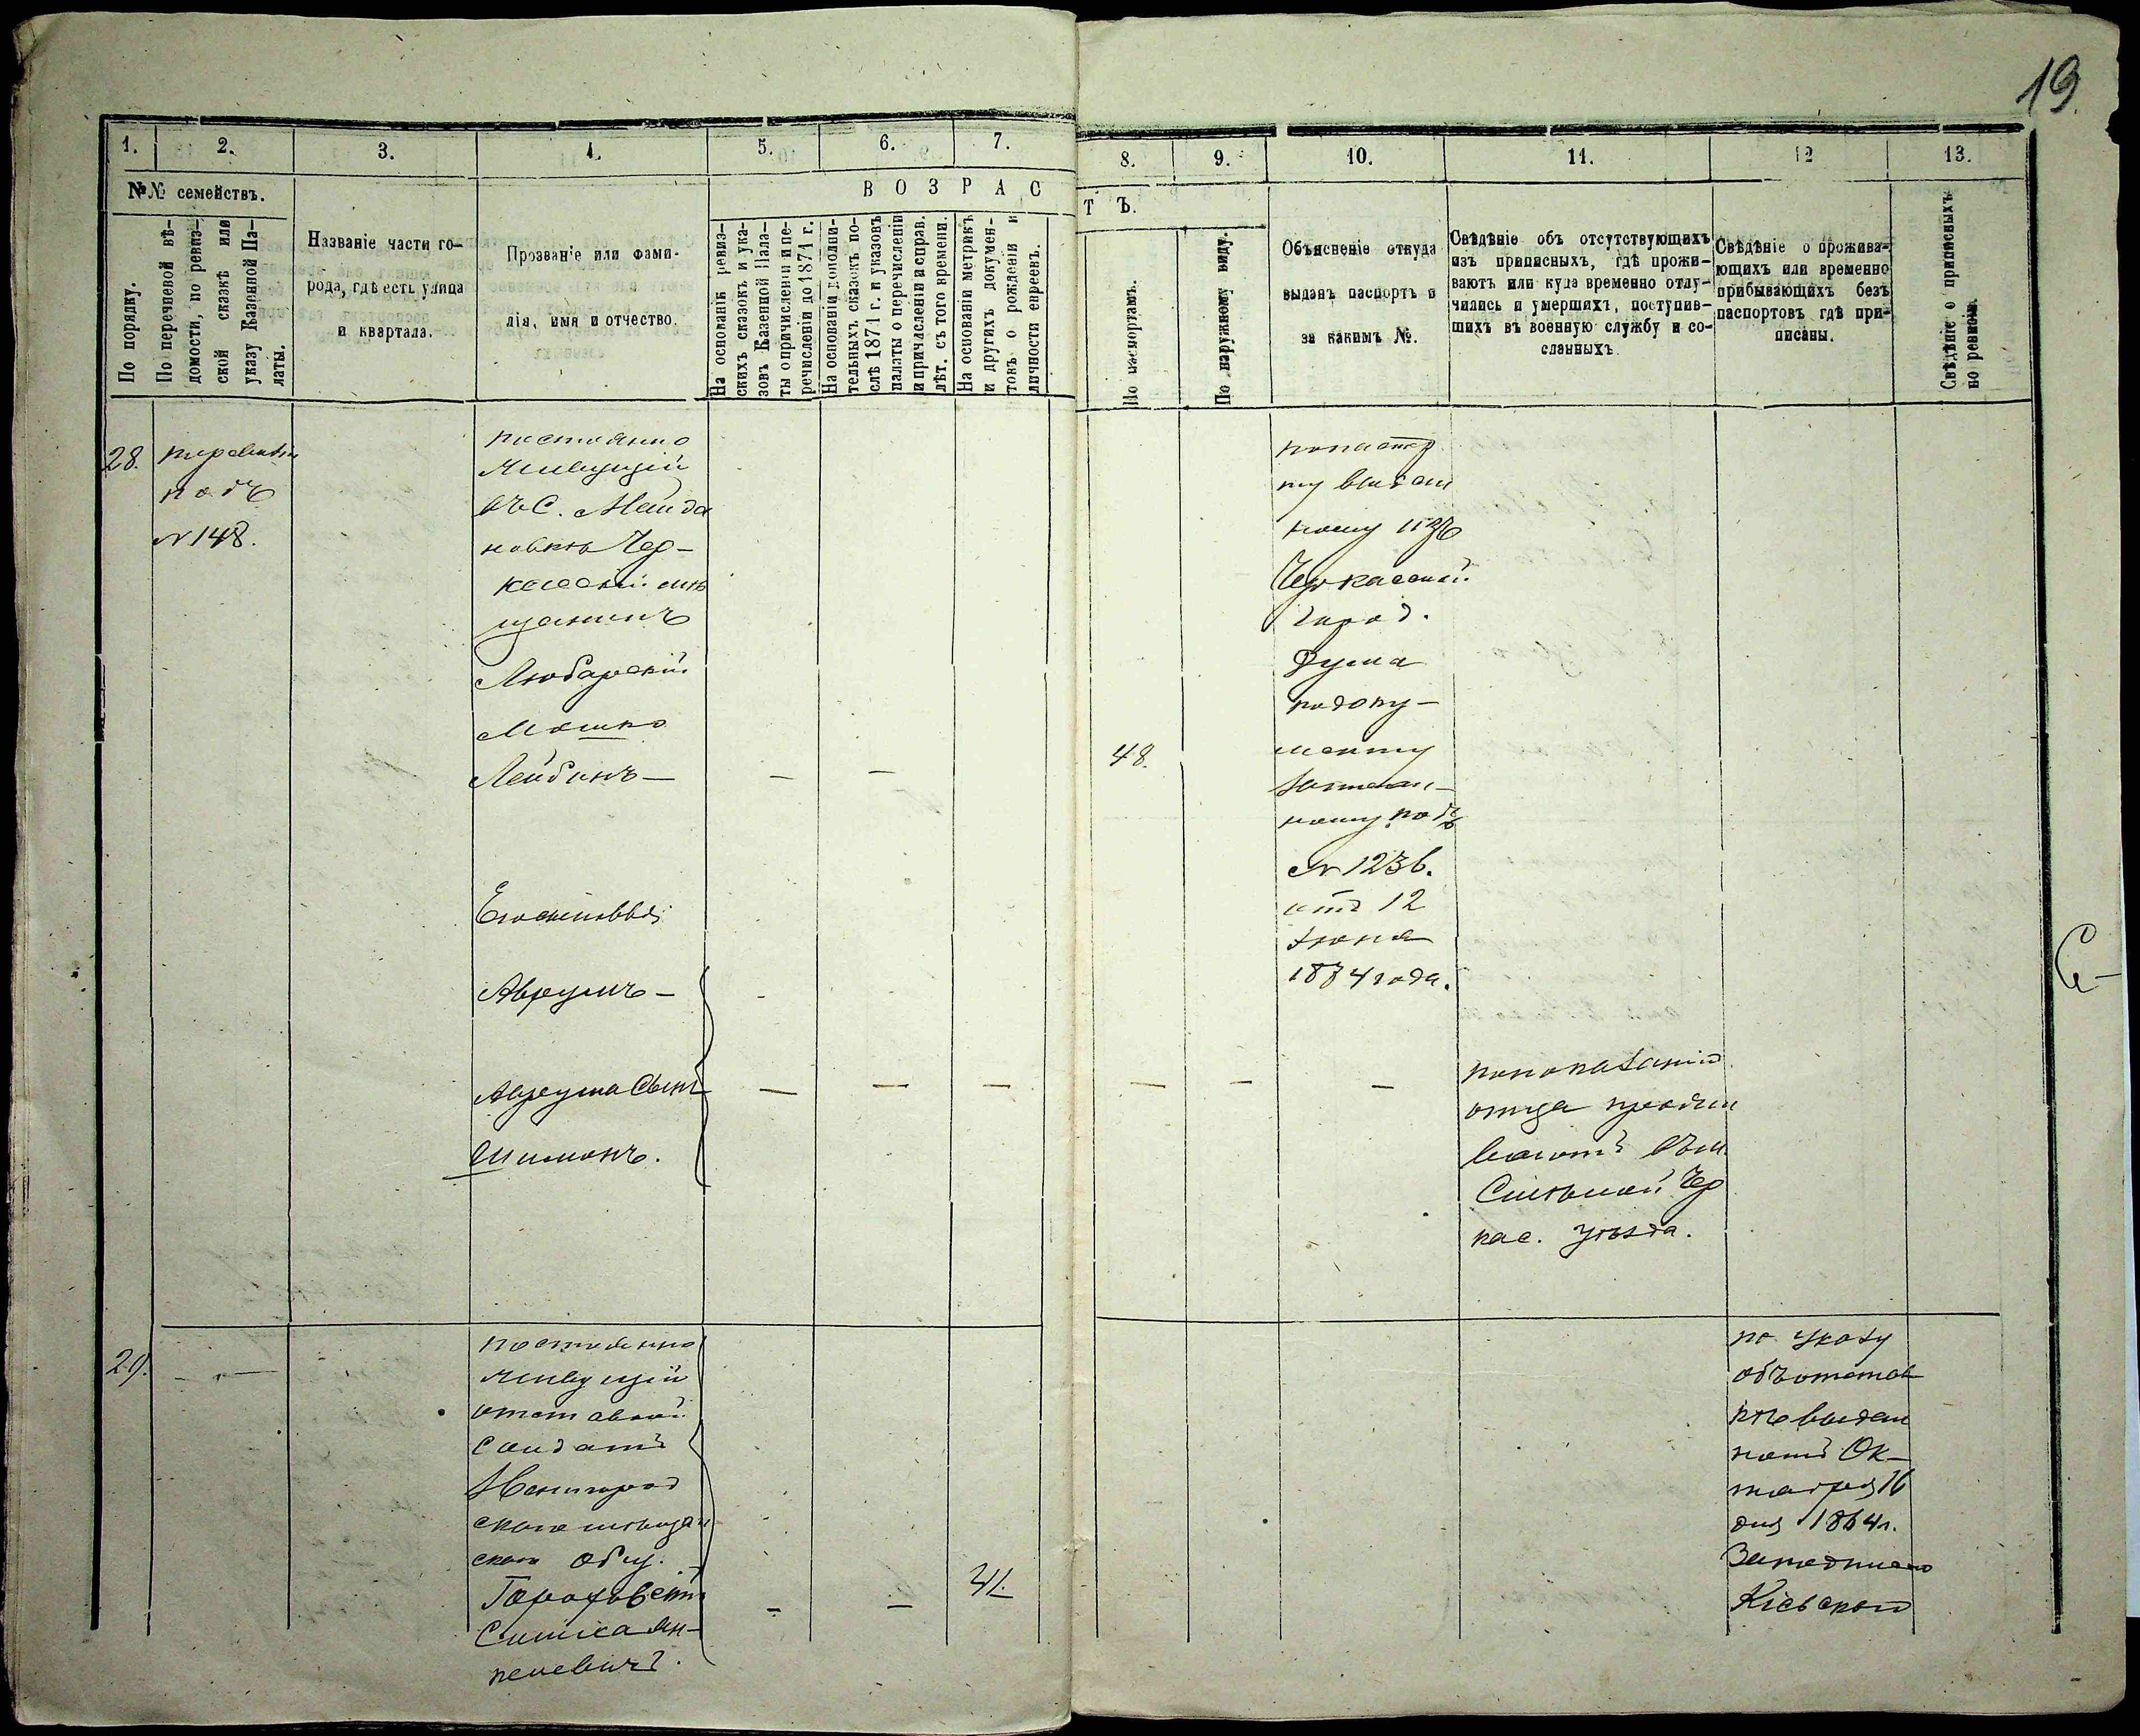 19.
1. 2. 3. 4. 5. 6. 7. 8. 9. 10. 11. 12 13.
№№ семействъ.
По порядку.
По перечневой вѣ-
домости, по ревиз-
ской сказкѣ или
указу Казенной Па-
латы.
Названіе части го-
рода, гдѣ есть улица
и квартала.
Прозваніе или фами-
лія, имя и отчество.
ВОЗРАСТЪ.
На основаніи ревиз-
скихъ сказокъ и ука-
зовъ Казенной Пала-
ты о причисленіи и пе-
речисленіи до 1871 г.
На основаніи дополни-
тельныхъ сказокъ по-
слѣ 1871 г. и указовъ
палаты о перечисленіи
и причисленіи и справ.
лѣт. съ того времени.
На основаніи метрикъ
и другихъ докумен-
товъ о рожденіи и
личности евреевъ.
По паспортамъ.
По наружному виду.
Объясненіе откуда
выданъ паспортъ и
за какимъ №.
Свѣдѣніе объ отсутствующихъ
изъ приписныхъ, гдѣ прожи-
ваютъ или куда временно отлу-
чились и умершихъ, поступив-
шихъ въ военную службу и со-
сланныхъ.
Свѣдѣніе о прожива-
ющихъ или временно
прибывающихъ безъ
паспортовъ гдѣ при-
писаны.
Свѣдѣніе о приписныхъ
по ревизіи.
28.
подъ
№ 148.
постоянно
живущій
въ С. Майда
новкѣ Чер-
касскій мѣ
щанинъ
Любарскій
Мошко
Лейбинъ —
Аврумъ —
Аврума Сынъ
Шимонъ.
48.
ному изъ
Черкасской
город.
Дума
по доку-
менту
ному подъ
№ 1236.
отъ 12
1884 года.
по показанію
отца прожи
ваютъ въ м.
Смѣлой Чер
кас. уѣзда.
29.
постоянно
живущій
отставной
солдатъ
скаго мѣщан
скаго общ.
Симха Ян-
келевичъ.
по указу
объ отстав
кѣ выдан
номъ Ок-
тября 16
дня 1864 г.
Кіевской